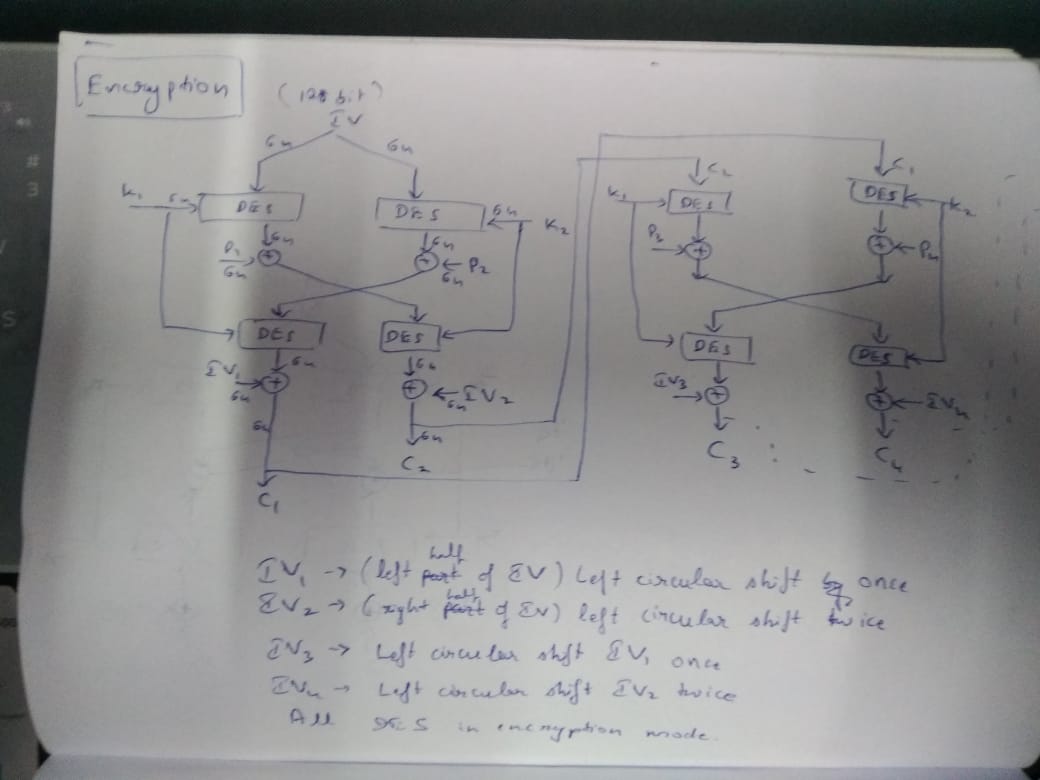 Encryption
(128 bit)
IV
64 64
K1 64 DES DES 64 K2
64 64
P1 64 P2 64
DES DES
IV1 64 64 64 IV2 64
64 64
C2
C1
C2 C1
K1 DES DES K2
P3 P4
DES DES
IV3 IV4
C3 C4
IV1 → (left half of IV) Left circular shift once
IV2 → (right half of IV) left circular shift twice
IV3 → Left circular shift IV1 once
IV4 → Left circular shift IV2 twice
All DES in encryption mode.